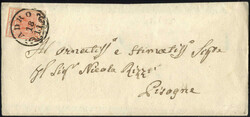 Al Ornatiss.º e Stimatiss.º Sigre
Il Sigr Nicola Rizzi
Pisogne